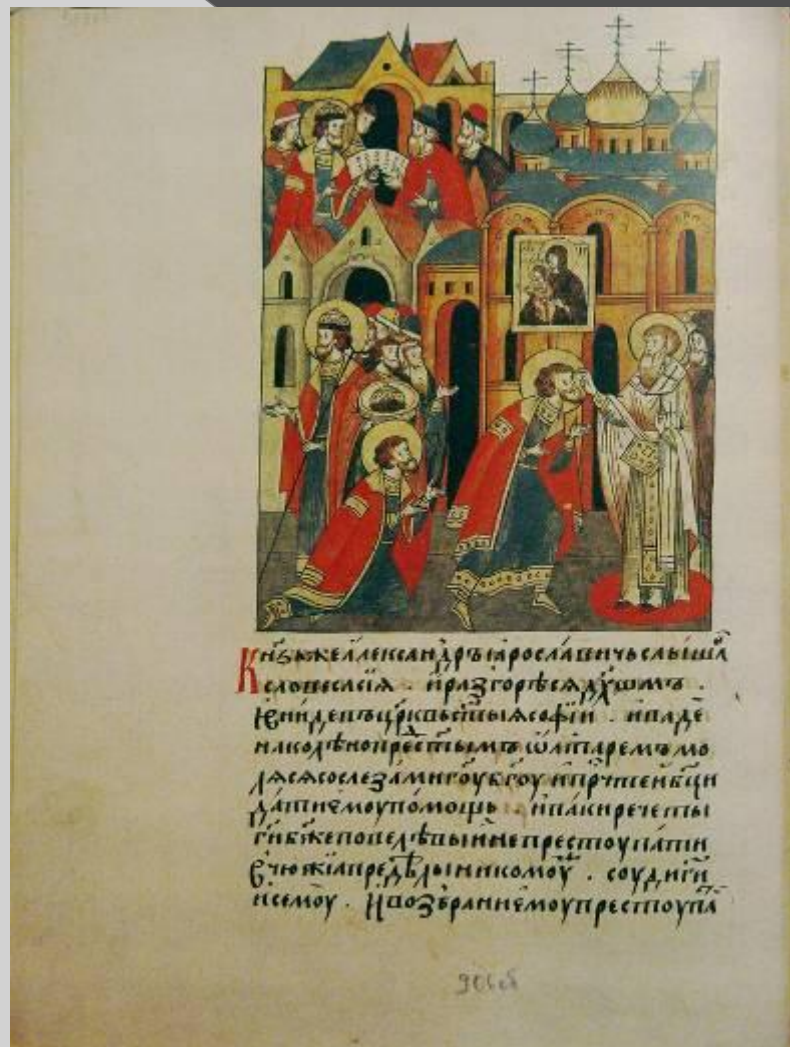 Кн҃зьжеалеѯандръꙗрославичьслышⷶ
словесасїꙗ . ѝразгорѣсядх҃омъ .
ѝвнидевъцр҃ковьст҃ыясофїи . ѝпаде
наколѣнопрест҃ымъѿлтаремъмо
лясясослезамигоу҃бг҃оуѝпрⷱ҇тѣибц҃и
датиемоупомощь . ѝпакиречеты
гѝбж҃еповелѣвыѝнепрестоупати
вчюжїапредѣлыникомоу . соудигѝ
ѝсемоу . ѝвозбраниемоупрестоупаⷮ
906об